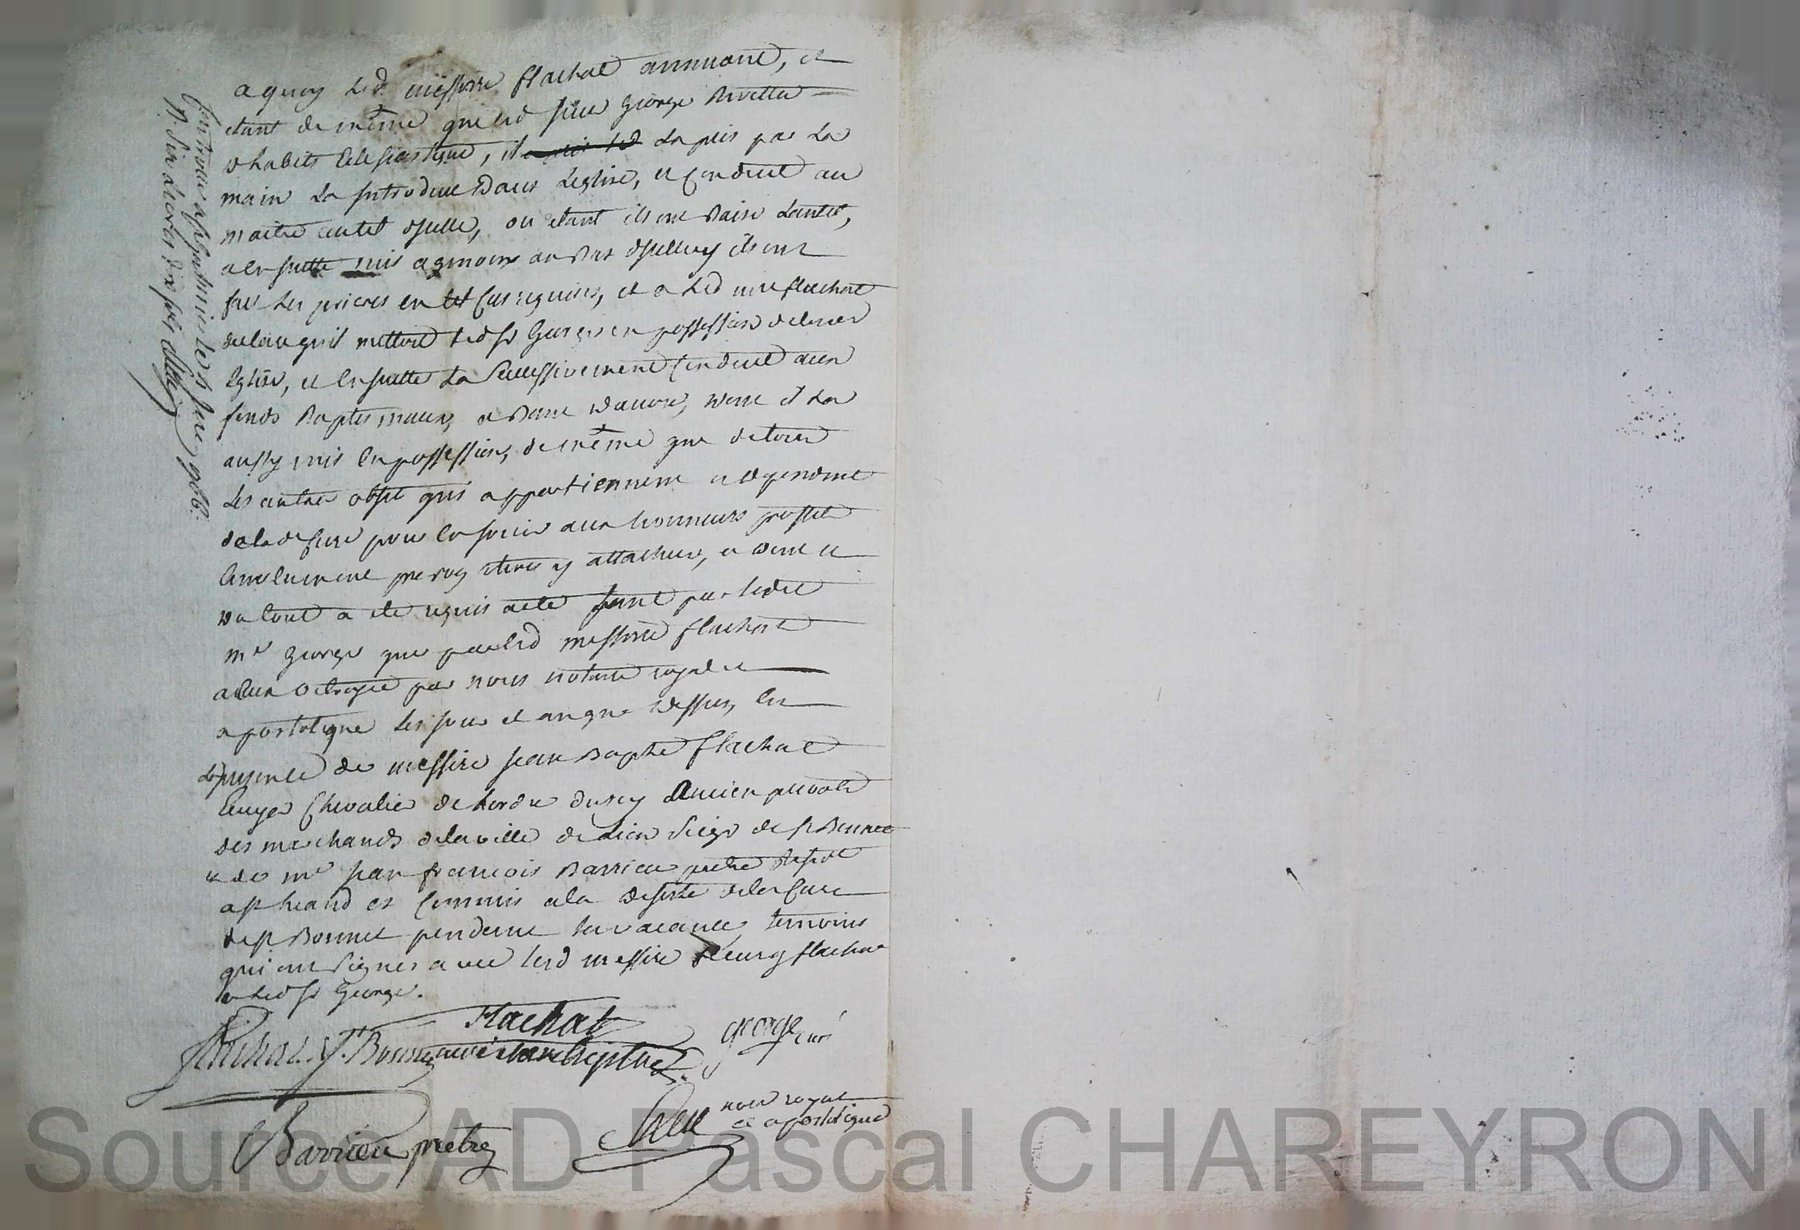 a quoy led. messire flachat annuant, et
etant de même que led sieur George Revetu
d habits Eclesiastique, il la pris par la
main La Introduit Dans Leglise, et Conduit au
maitre autel d'jcelle, ou etant ils ont Baisé Lautel,
a Ensuitte mis a genoux au bas d'jcelluy ils ont
fait les prieres en tel Cas requises, et a Led mre flachat
declaré qu'il mettoit led sr George en possession de lad
Eglise, et Ensuitte La Successivement Conduit aux
fonds Baptismaux, dont il La
aussy mis En possession, de même que de tous
Les autres objet qui appartiennent et dependent
de lad Cure pour En jouir aux honneurs proffit
Emolument prerogatives y attachees, et dont et
du tout a été requis acte tant par ledit
mre George que par led messire flachat
a Eux octroyé par nous notaire royal et
apostolique Les jour et an que dessus, En
La presence de messire jean Baptte flachat
Ecuyer Chevalier de Lordre du roy Ancien prevôt
des marchands de la ville de Lion Seigr de st Bonnet
et de mre jean francois Barrieu pretre
a st heand et Commis a la deserte de la Cure
de st Bonnet pendant la vacance, temoins
qui ont Signés avec led messire fleury flachat
et led sr George.
Flachat
Flachat St. Bonnet
george curé
Barrieu pretre
nore royal
et apostolique
Controlé a st